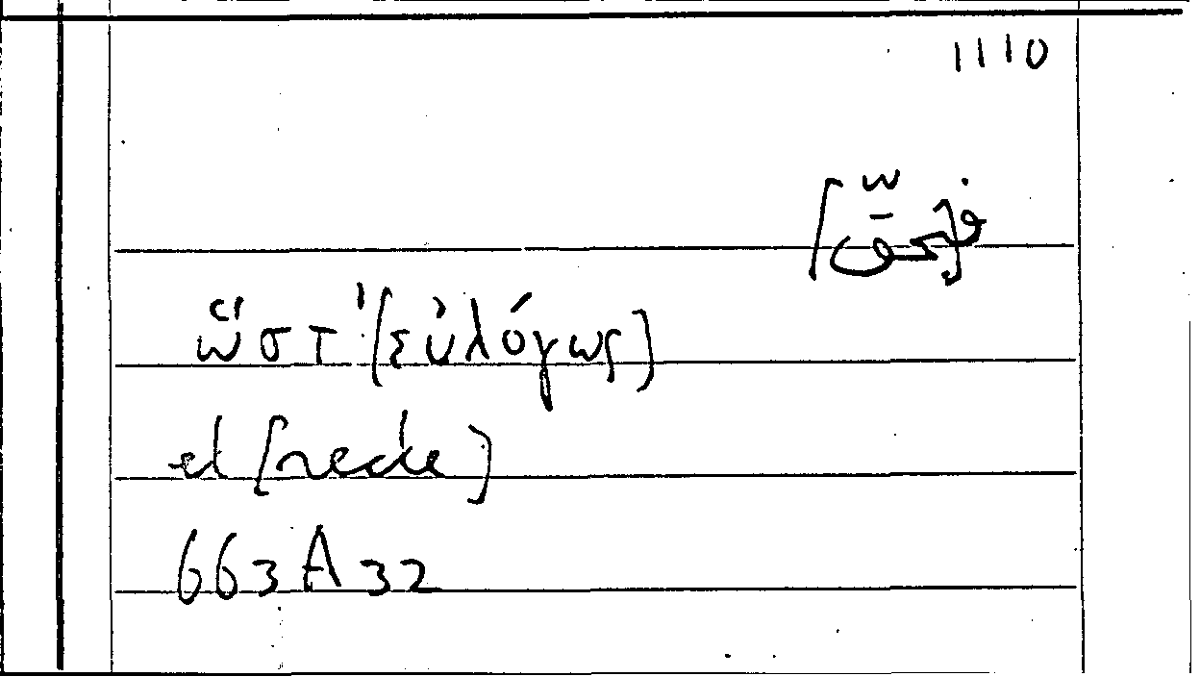 1110
ὥστ' [εὐλόγως]
et [recte]
663A32